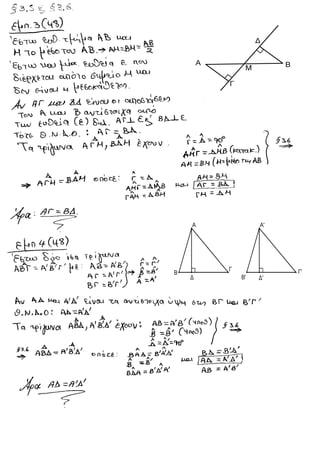 §3.5 & §3.6.
Εμπ.3 (48)
Έστω ευθ τμήμα ΑΒ και
Μ το μέσο του ΑΒ. → ΑΜ=ΒΜ= ΑΒ/2
Έστω και μια ευθεία ε που
διέρχεται από το σημείο Μ και
δεν είναι η μεσοκάθετος.
Αν ΑΓ και ΒΔ είναι οι αποστάσεις
των Α και Β αντίστοιχα από
την ευθεία (ε) δηλ. ΑΓ⊥ε & ΒΔ⊥ε.
Τότε Θ.Ν.Δ.Ο. : ΑΓ = ΒΔ.
Τα τρίγωνα ΑΓΜ, ΒΔΜ έχουν.
Γ̂ = Δ̂ = 90°
ΑΜ̂Γ = ΔΜ̂Β (κατακ.)
ΑΜ = ΒΜ (Μ μέσο της ΑΒ
§3.6
→ ΑΓΜ = ΒΔΜ οπότε:
Γ̂ = Δ̂
ΑΜ̂Γ = ΔΜ̂Β
ΓΑ̂Μ = ΔΒ̂Μ
και
ΑΜ = ΒΜ
ΑΓ = ΒΔ
ΓΜ = ΔΜ
Άρα: ΑΓ = ΒΔ.
Δ
Α
Μ
Β
Γ
Εμπ 4 (48)
Έστω δύο ίσα τρίγωνα
ΑΒΓ = Α'Β'Γ' με:
ΑΒ = Α'Β'
ΑΓ = Α'Γ'
ΒΓ = Β'Γ'
Γ̂ = Γ̂'
Β̂ = Β̂'
Α̂ = Α̂'
Α
Α'
Β
Δ
Γ
Β'
Δ'
Γ'
Αν ΑΔ και Α'Δ' είναι τα αντίστοιχα ύψη στις ΒΓ και Β'Γ'
Θ.Ν.Δ.Ο: ΑΔ=Α'Δ'
Τα τρίγωνα ΑΒΔ, Α'Β'Δ' έχουν:
ΑΒ = Α'Β' (υποθ)
Β̂ = Β̂' (υποθ)
Δ̂ = Δ̂' = 90°
§3.6
§3.6 → ΑΒΔ = Α'Β'Δ' οπότε:
ΒΑ̂Δ = Β'Α̂'Δ'
Β̂ = Β̂'
ΒΔ̂Α = Β'Δ̂'Α'
και
ΒΔ = Β'Δ'
ΑΔ = Α'Δ'
ΑΒ = Α'Β'
Άρα ΑΔ = Α'Δ'